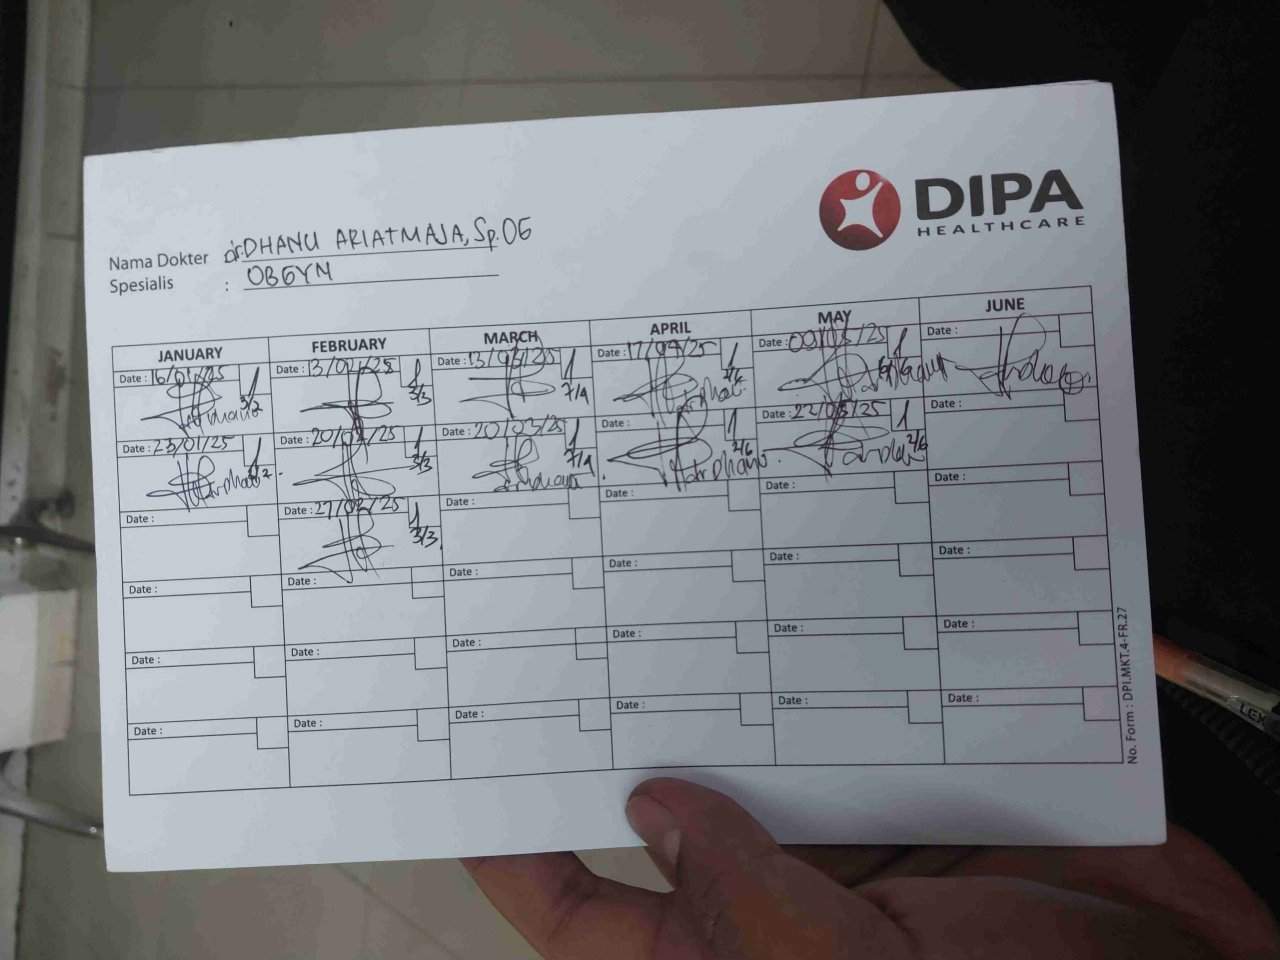 DIPA
HEALTHCARE
Nama Dokter dr. DHANU ARIATMAJA, Sp.OG
Spesialis : OBGYN
JANUARY FEBRUARY MARCH APRIL MAY JUNE
Date : 16/01/25 1 Date : 13/02/25 1 Date : 13/03/25 1 Date : 17/04/25 1 Date : 09/05/25 1 Date :
3/2 3/3 7/4 2/6
Date : 23/01/25 1 Date : 20/02/25 1 Date : 20/03/25 1 Date : 1 Date : 22/05/25 1 Date :
3/3 7/4 2/6 2/6
Date : Date : 27/02/25 1 Date : Date : Date : Date :
3/3
Date : Date : Date : Date : Date : Date :
Date : Date : Date : Date : Date : Date :
Date : Date : Date : Date : Date : Date :
No. Form : DPI.MKT.4-FR.27